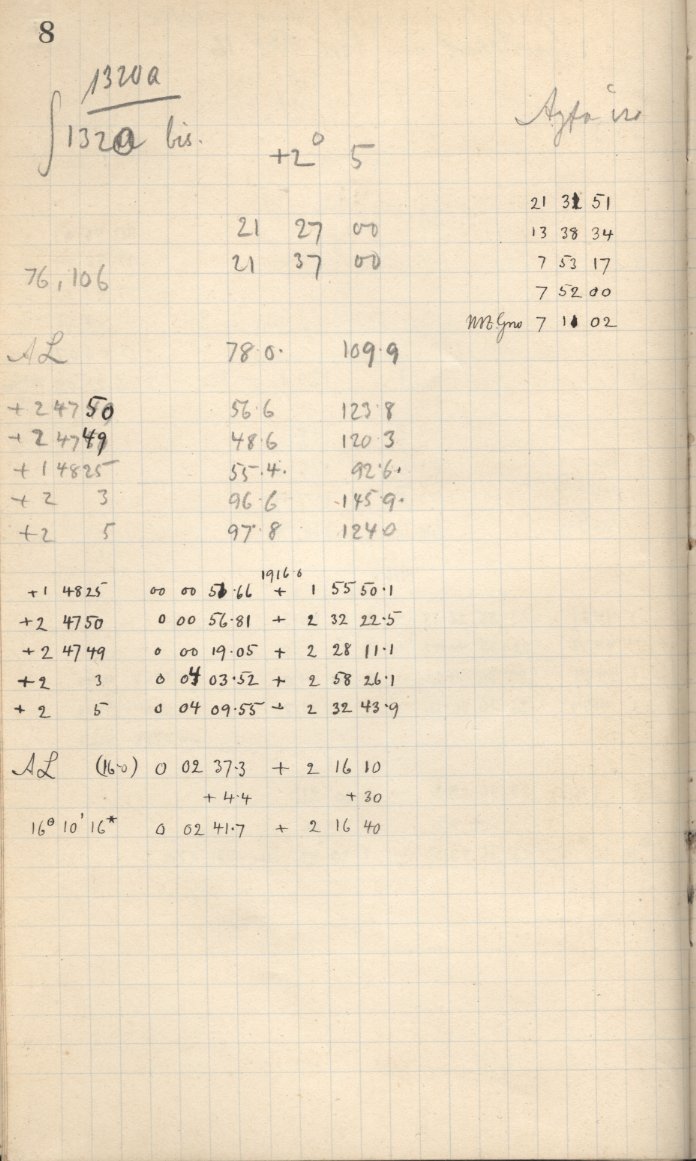 8
1320a
1320a bis.
+2° 5
21 27 00
21 37 00
76, 106
AL 78.0. 109.9
+2 4750 56.6 123.8
+2 4749 48.6 120.3
+1 4825 55.4. 92.6.
+2 3 96.6 145.9.
+2 5 97.8 124.0
21 31 51
13 38 34
7 53 17
7 52 00
7 11 02
1916.0
+1 4825 00 00 51.66 + 1 55 50.1
+2 4750 0 00 56.81 + 2 32 22.5
+2 4749 0 00 19.05 + 2 28 11.1
+2 3 0 04 03.52 + 2 58 26.1
+2 5 0 04 09.55 + 2 32 43.9
AL (16.0) 0 02 37.3 + 2 16 10
+4.4 +30
16° 10' 16* 0 02 41.7 + 2 16 40